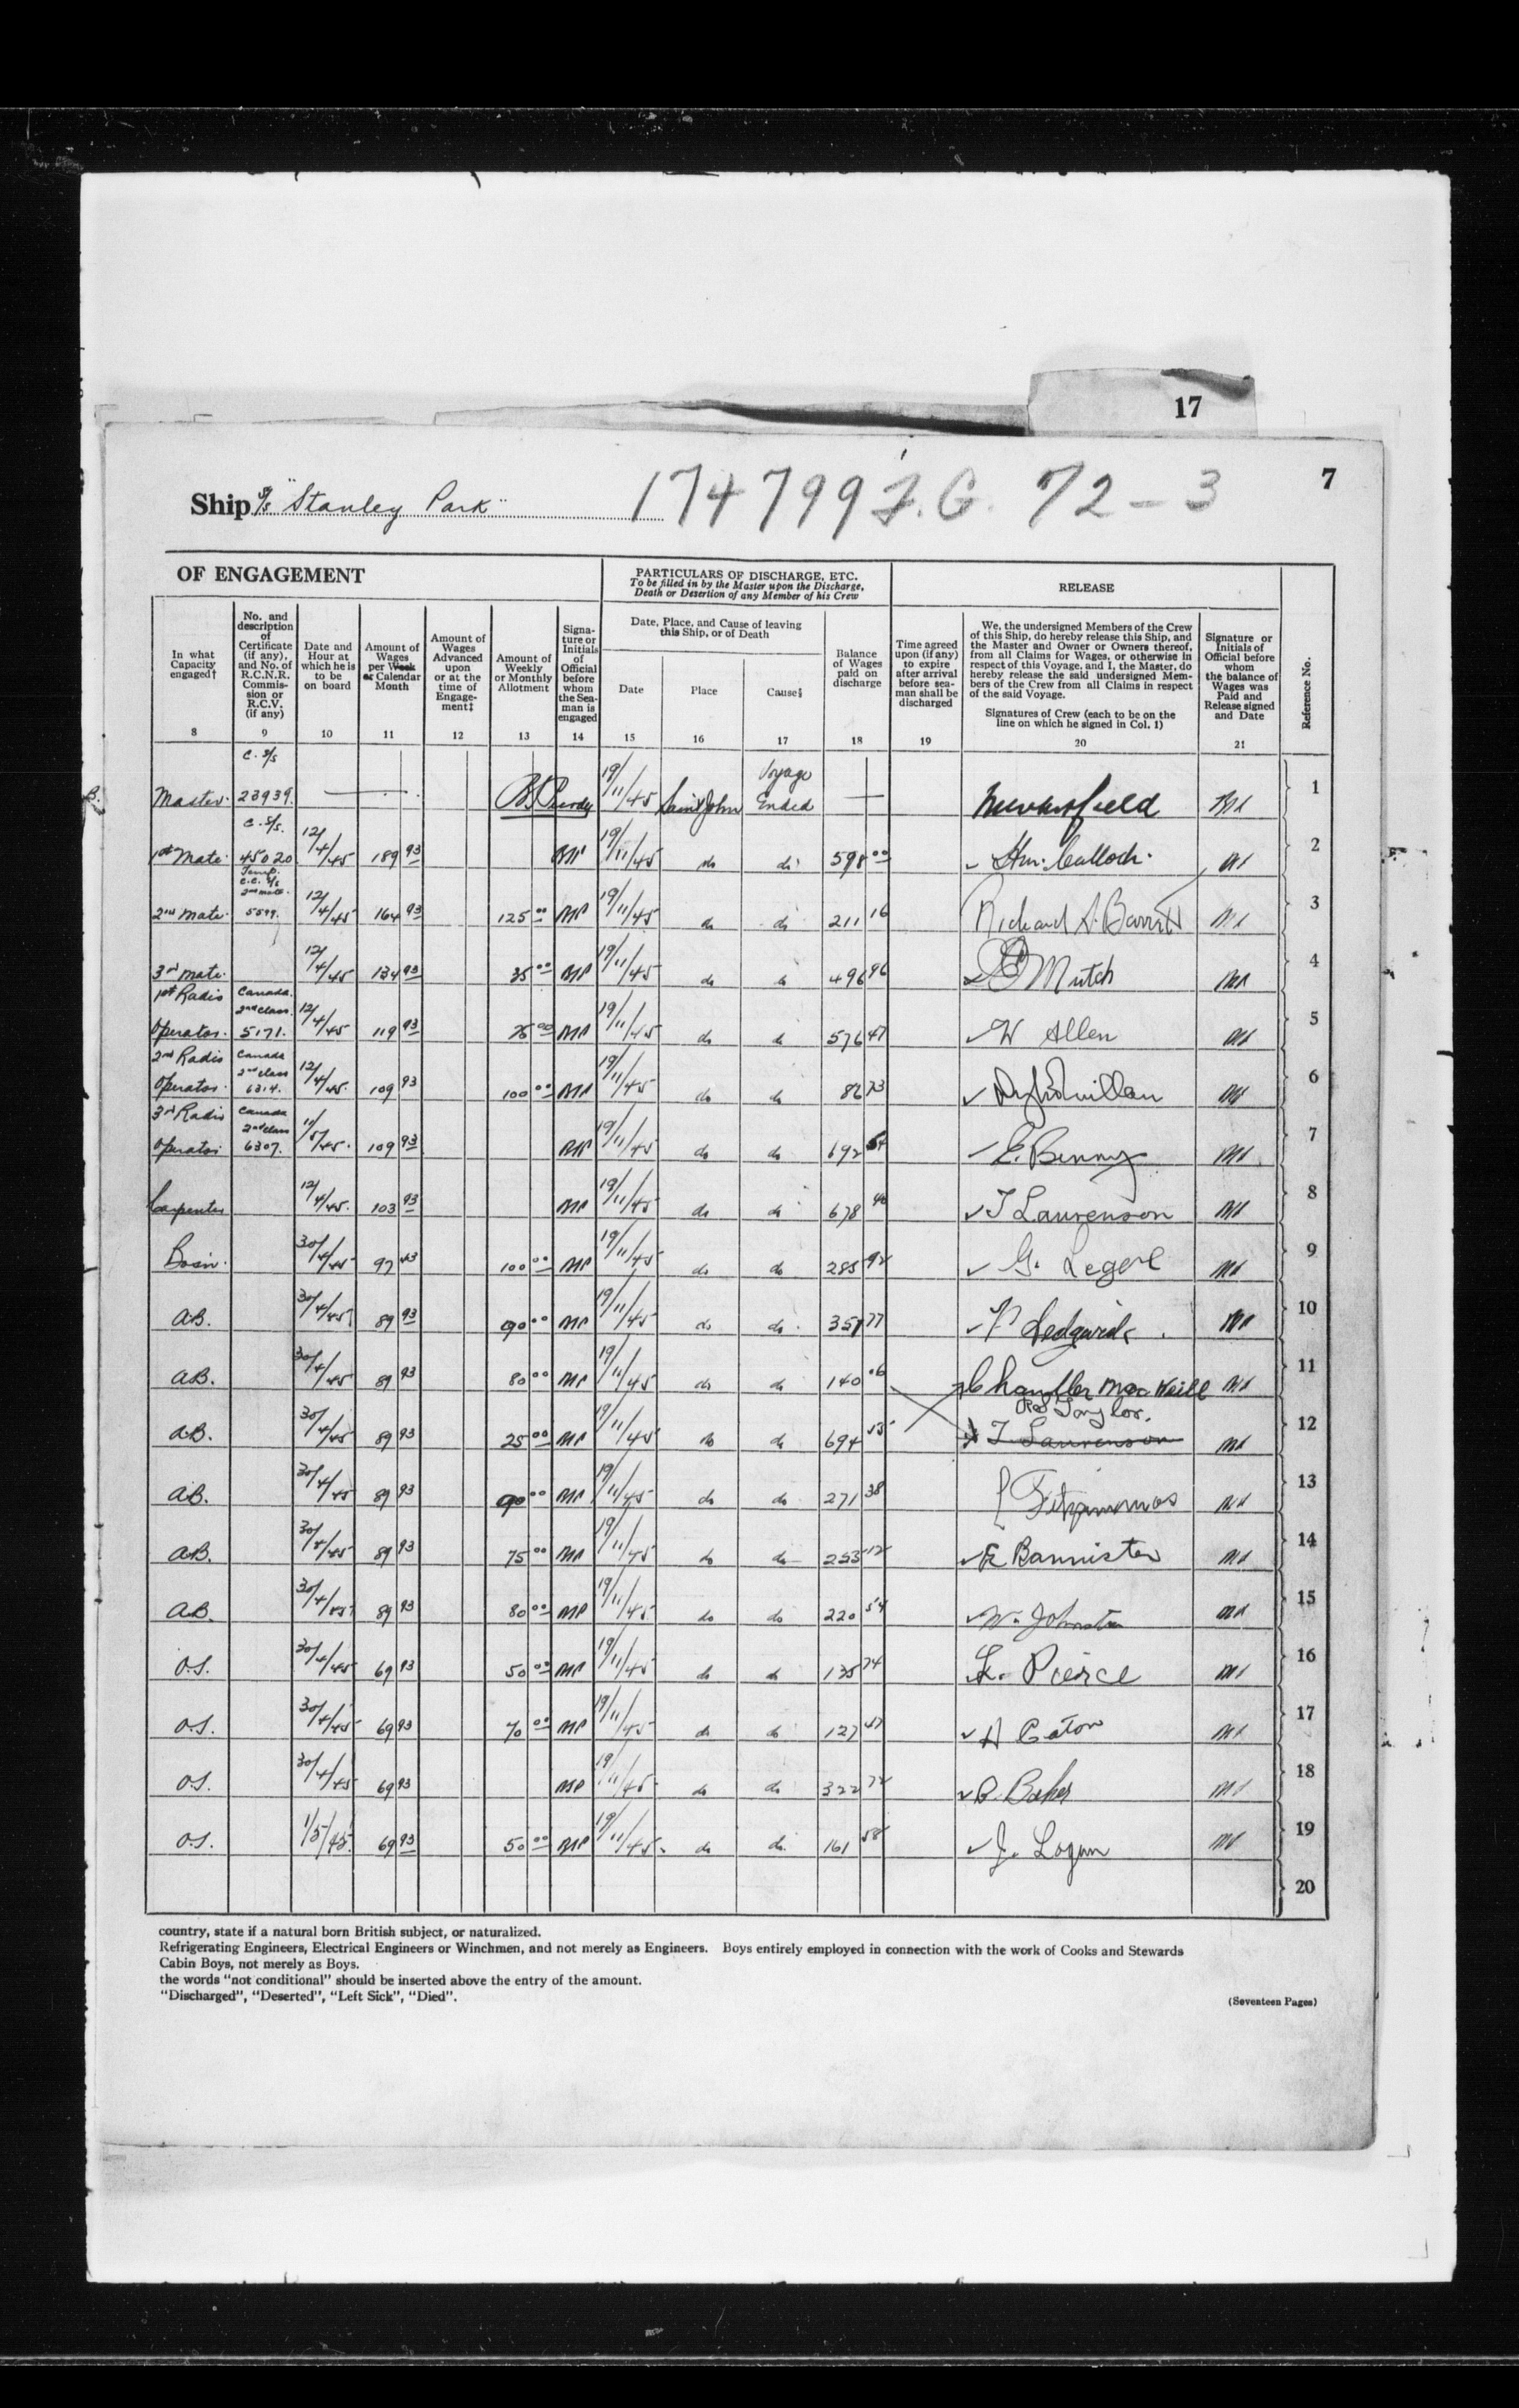 17
7
Ship S/S "Stanley Park" 174799 F.G. 72-3
OF ENGAGEMENT
PARTICULARS OF DISCHARGE, ETC.
To be filled in by the Master upon the Discharge,
Death or Desertion of any Member of his Crew
RELEASE
In what Capacity engaged†
No. and description of Certificate (if any), and No. of R.C.N.R. Commission or R.C.V. (if any)
Date and Hour at which he is to be on board
Amount of Wages per Week or Calendar Month
Amount of Wages Advanced upon or at the time of Engagement‡
Amount of Weekly or Monthly Allotment
Signature or Initials of Official before whom the Seaman is engaged
Date, Place, and Cause of leaving this Ship, or of Death
Date
Place
Cause§
Balance of Wages paid on discharge
Time agreed upon (if any) to expire after arrival before seaman shall be discharged
We, the undersigned Members of the Crew
of this Ship, do hereby release this Ship, and
the Master and Owner or Owners thereof,
from all Claims for Wages, or otherwise in
respect of this Voyage, and I, the Master, do
hereby release the said undersigned Members
of the Crew from all Claims in respect
of the said Voyage.
Signatures of Crew (each to be on the
line on which he signed in Col. 1)
Signature or Initials of Official before whom the balance of Wages was Paid and Release signed and Date
Reference No.
8 9 10 11 12 13 14 15 16 17 18 19 20 21
Master. C. S/S 23939. 19/11/45 Saint John Voyage Ended 1
1st Mate. C. S/S. 45020 12/4/45 189 93 19/11/45 do do 598 00 2
2nd Mate. Temp. C.C. S/S 2nd mate. 5599. 12/4/45 164 93 125 00 19/11/45 do do 211 16 Richard A. Barrett 3
3rd Mate. 12/4/45 134 93 35 00 19/11/45 do do 496 96 Mutch 4
1st Radio Operator. Canada. 2nd Class. 5171. 12/4/45 119 93 75 00 19/11/45 do do 576 47 W Allen 5
2nd Radio Operator. Canada 2nd class 6314. 12/4/45. 109 93 100 00 19/11/45 do do 86 73 6
3rd Radio Operator Canada 2nd Class 6307. 11/5/45. 109 93 19/11/45 do do 692 E. Benny 7
Carpenter 12/4/45. 103 93 19/11/45 do do 678 40 T Laurenson 8
Bosn. 30/4/45 97 43 100 00 19/11/45 do do 285 92 G. Legere 9
A.B. 30/4/45 89 93 90 00 19/11/45 do do 351 77 10
A.B. 30/4/45 89 93 80 00 19/11/45 do do 140 06 Chandler MacNeill 11
A.B. 30/4/45 89 93 25 00 19/11/45 do do 694 Taylor. T. Laurenson 12
A.B. 30/4/45 89 93 90 00 19/11/45 do do 271 38 13
A.B. 30/4/45 89 93 75 00 19/11/45 do do 253 12 E Bannister 14
A.B. 30/4/45 89 93 80 00 19/11/45 do do 220 54 W. Johnston 15
O.S. 30/4/45 69 93 50 00 19/11/45 do do 135 74 Pierce 16
O.S. 30/4/45 69 93 70 00 19/11/45 do do 127 17
O.S. 30/4/45 69 93 19/11/45 do do 322 72 Baker 18
O.S. 1/5/45. 69 93 50 00 19/11/45. do do 161 58 J. Logan 19
20
country, state if a natural born British subject, or naturalized.
Refrigerating Engineers, Electrical Engineers or Winchmen, and not merely as Engineers. Boys entirely employed in connection with the work of Cooks and Stewards
Cabin Boys, not merely as Boys.
the words "not conditional" should be inserted above the entry of the amount.
"Discharged", "Deserted", "Left Sick", "Died".
(Seventeen Pages)